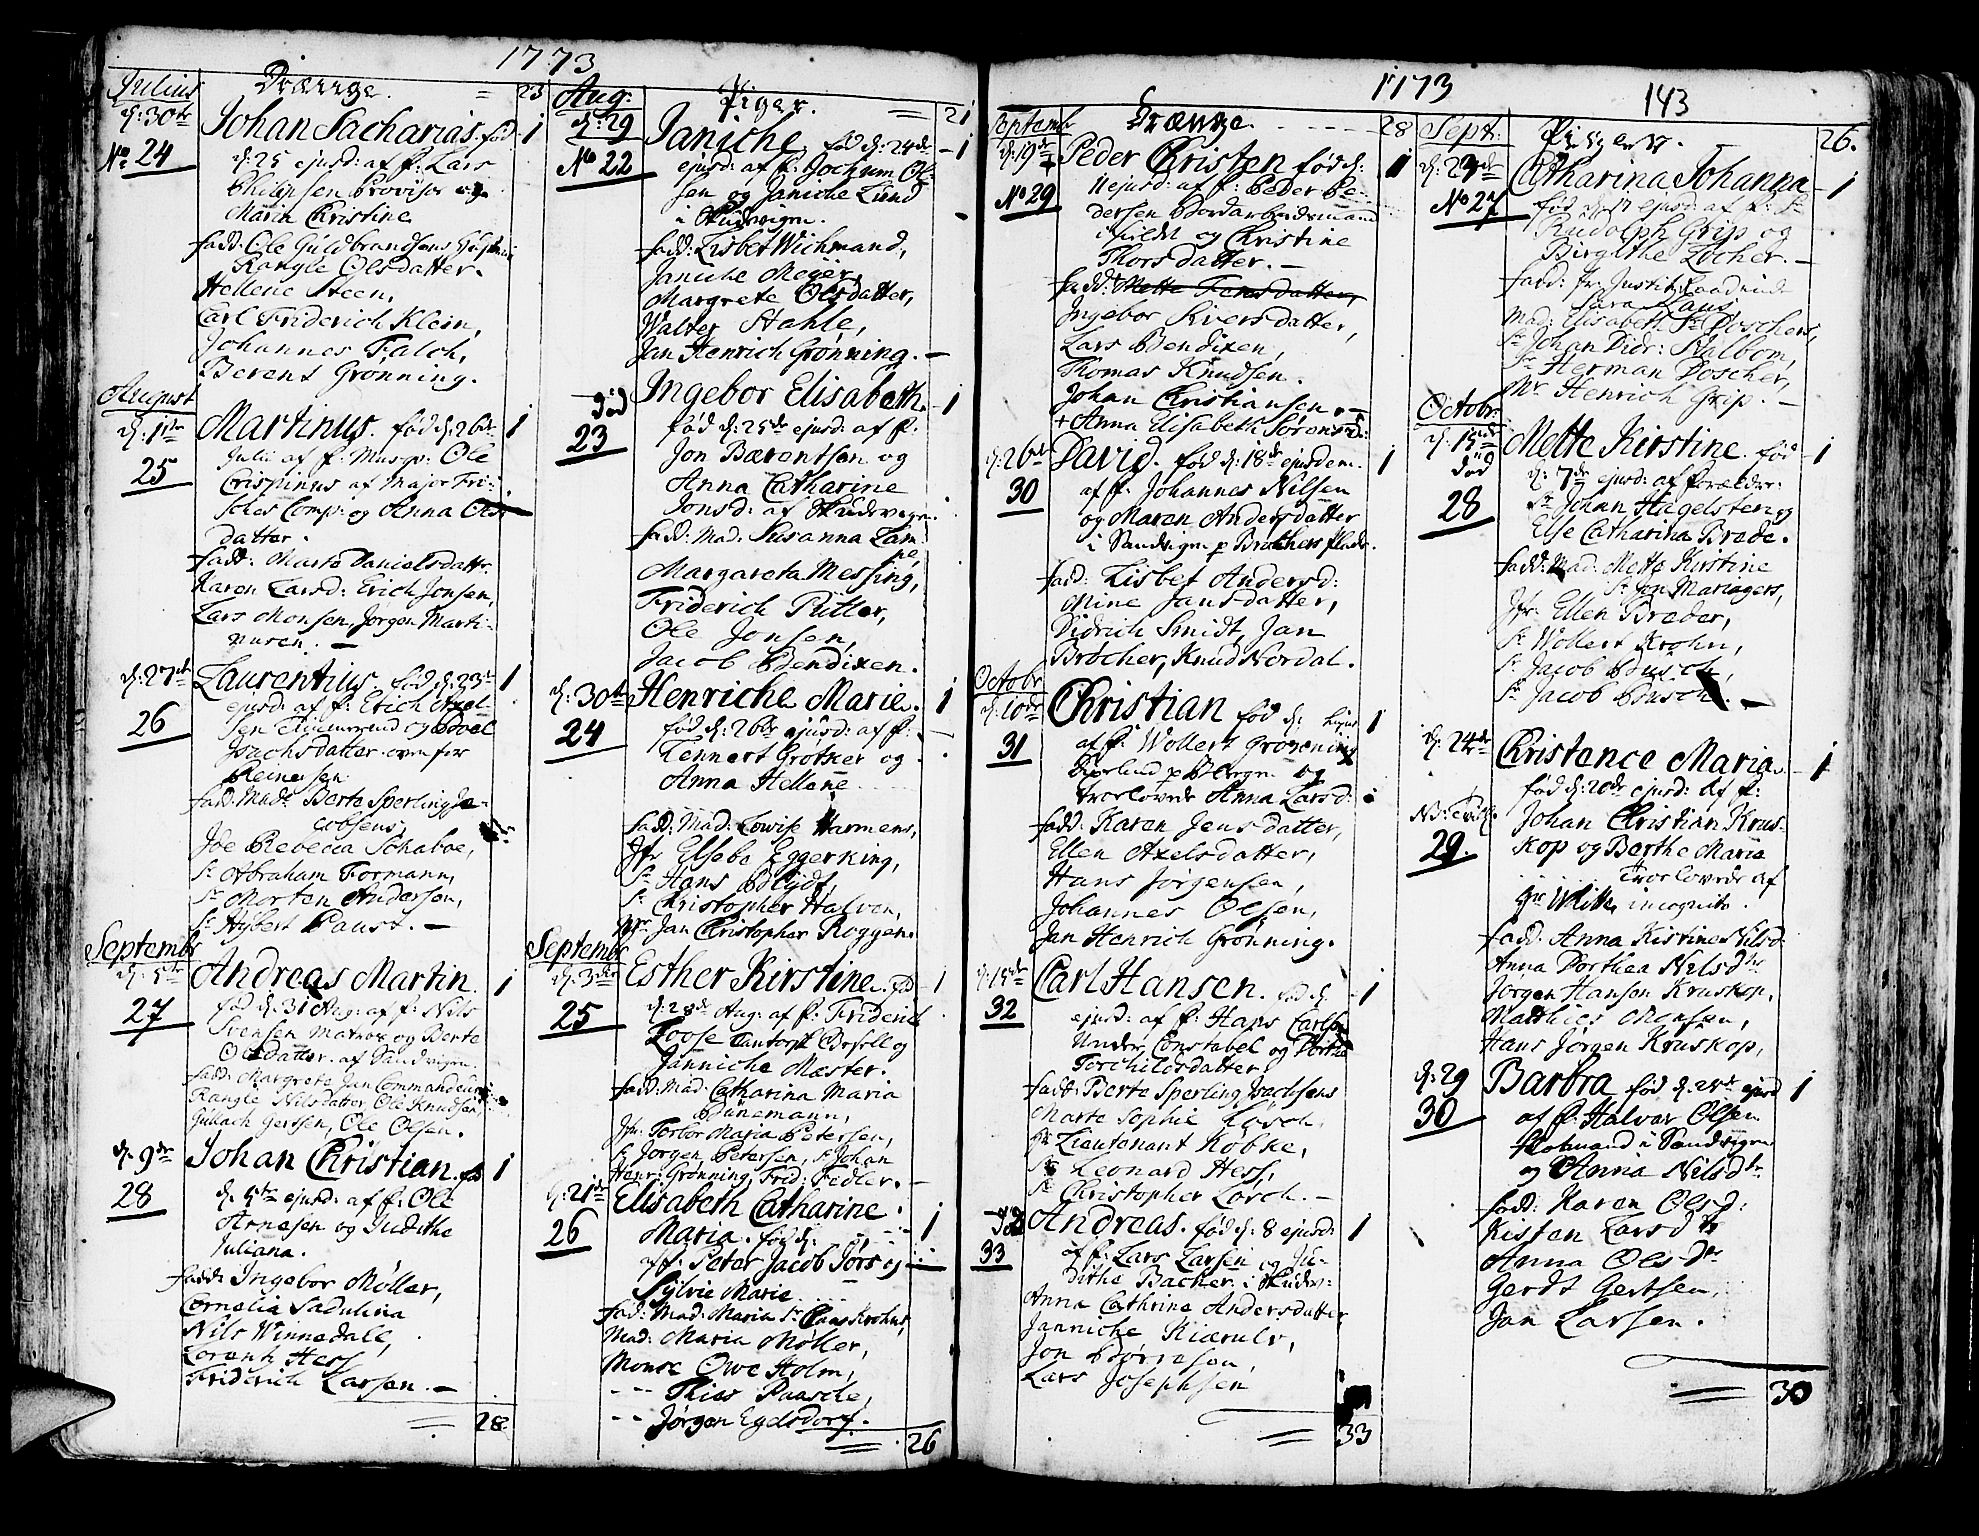 1773
Julius
Drænge.
23
d: 30te
Johan Sacharias. fød
1
No 24
d: 25 ejusd: af f: Lars
Philipsen Provisor og
Maria Christine
fadd: Ole Guldbrandsens
Rangle Olsdatter.
Hellene Steen,
Carl Friderich Klein,
Johannes Falch,
Berent Grønning.
August
d: 1te
Martinus. fød d: 26de
1
25
Julii af f: Musqr: Ole
Crispinus af Major Fri-
sches Comp: og Anna Ols-
datter.
fadd: Marte Danielsdattr.
Karen Larsd: Erich Jonsen,
Lars Monsen, Jørgen Marti-
nusen. —
d: 27de
Laurentius. fød d: 23de
1
26
ejusd: af f: Erich Axel-
sen og Boel
Isachsdatter
Reinersen
fadd: Mad: Berte Sperling Ja-
cobsens,
Jfe Rebecca Schaboe,
Sr Abraham Formann,
Sr Morten Andersen,
Sr Hybert Paust. —
Septembr
d: 5te
Andreas Martin.
1
27
fød d: 31 Aug: af f: Nils
Svensen Matros og Berte
Olsdatter. af Sandvigen.
fadd: Margrete Jan Commandeurs
Rangle Nilsdatter, Ole Knudsen,
Gullach Gertsen, Ole Olsen.
d: 9de
Johan Christian. fød
1
28
d: 5te ejusd: af f: Ole
Arnesen og Judithe
Juliana.
fadd: Ingebor Møller,
Cornelia Sadulina
Nils Winnedale,
Lorentz Hess
Friderich Larsen. —
28
Aug:
Piger.
21
d: 29
Janiche, fød d: 24de
1
No 22
ejusd: af f: Jochum Ol-
sen og Janiche Lund
i Skudevigen.
fadd: Lisbet Wichmand,
Janiche Meyer,
Margrete Olsdatter,
Walter Stahle,
Jan Henrich Grønning. —
død
Ingebor Elisabeth.
1
23
fød d: 25de ejusd: af f:
Jon Bærentsen og
Anna Catharine
Jonsd: af Skudevigen.
fadd: Mad: Susanna Lam-
pe,
Margareta Messing,
Friderich Pütter,
Ole Jonsen,
Jacob Bendixen.
d: 30te
Henriche Marie.
1
24
fød d: 26de ejusd: af f:
Lennert Grotker og
Anna Hellene
fadd: Mad: Lowise Harmens,
Jfr Elsebe Eggerking,
Sr Hans Blydt,
Sr Christopher Halven,
Mr Jan Christopher Roggen.
Septembr
d: 3de
Esther Kirstine. fød
1
25
d: 28de Aug: af f: Friderich
Loose og
Janniche Mæster.
fadd: Mad Catharina Maria
Bünemann,
Jfr: Torbor Maria Petersen,
Sr Jørgen Petersen, Sr Johan
Henr: Grønning, Frid: Fedler. —
d: 21de
Elisabeth Catharine
26
Maria. fød d:
1
af f: Peter Jacob Jørs og
Sylvie Marie
fad: Mad: Maria Sr Claus Krohns,
Mad: Maria Møller,
Monsr Owe Holm,
--- Thies Paasche,
-- Jørgen Egelsdorf.
26
1773
143
Septemb
Drænge.
28
d: 19de
Peder Christen fød d:
1
No 29
11 ejusd: af f: Peder Pe-
dersen Bordarbeidsmand
og Christine
Thorsdatter. —
fadd: Mette Tensdatter,
Ingebor Iversdatter,
Lars Bendixen,
Thomas Knudsen.
Johan Christiansen, —
+ Anna Elisabeth Sørensd:
d: 26de
David. fød d: 18de ejusdem.
1
30
af f: Johannes Nilsen
og Maren Andersdatter
i Sandvigen p Brøchers plads.
fadd: Lisbet Andersd:
Mine Jansdatter,
Didrich Smidt, Jan
Brøcher, Knud Nordal.
Octobr
d: 10de
Christian fød d:
1
31
af f: Wollert Grønning
p Bergen og
trolovede Anna Larsd:
fadd: Karen Jensdatter,
Ellen Axelsdatter,
Hans Jørgensen,
Johannes Olsen,
Jan Henrich Grønning.
Carl Hansen. fød d
1
32
ejusd: af f: Hans Carlsen
Under Constabel og Dorthe
Torchildsdatter,
fadd: Berte Sperling Isachsens
Marte Sophie Losch,
Hr Lieutenant Købke,
Sr Leonard Hess,
Sr Christopher Lorch. —
død
Andreas. fød d: 8 ejusd:
1
33
af f: Lars Larsen og Ju-
dithe Backer i Skudev:
Anna Cathrine Andersdatter
Janniche Kiærulv,
Jon Børresen,
Lars Josephsen
33
Sept:
Pigern.
26.
d: 23de
Catharina Johanna
1
No 27
fød d: 17 ejusd: af f: Sr
Rudolph Grip og
Birgithe Locher. —
fadd: Fr: Justitzraadinde
Sara Daus,
Mad: Elisabeth Sr Doschers,
Sr Johan Didr: Kalbom,
Sr Herman Doscher,
Mr Henrich Grip. —
Octobr:
død
Mette Kirstine. fød
1
28
d: 7de ejusd: af Forældre:
Sr Johan Hagelsten og
Else Catharina Brede.
fadd: Mad: Mette Kirstine
Sr Jon Mariagers,
Jfr: Ellen Breder,
Sr Wollert Krohn,
Sr Jacob Busch,
Sr Jacob Busch. —
d: 24de
Christence Maria.
1
fød d: 20de ejusd: af f:
29.
Johan Christian Krus-
kop og Berthe Marie
Trolovede af
Hr Witte, incognito.
fadd: Anna Kistine Nilsd.
Anna Dorthea Nilsdtr
Jørgen Hansen Kruskop,
Matthies Monsen,
Hans Jørgen Kruskop,
d: 29
Barbra fød d: 25de ejusd
1
30
af f: Halvor Olsen
i Sandvigen
og Anna Nilsdtr
fadd: Karen Olsd:
Kisten Larsdtr
Anna Olsdr
Gerdt Gertsen,
Jan Larsen.
30